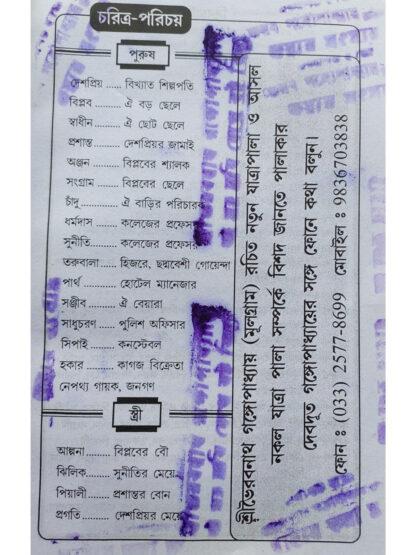 চরিত্র-পরিচয়
পুরুষ
দেশপ্রিয় ..... বিখ্যাত শিল্পপতি
বিপ্লব ........ ঐ বড় ছেলে
স্বাধীন ........ ঐ ছোট ছেলে
প্রশান্ত ........ দেশপ্রিয়র জামাই
অঞ্জন ........ বিপ্লবের শ্যালক
সংগ্রাম ........ বিপ্লবের ছেলে
চাঁদু ........ ঐ বাড়ির পরিচারক
ধর্মদাস ........ কলেজের প্রফেসর
সুনীতি ........ কলেজের প্রফেসর
তরুবালা ...... হিজরে, ছদ্মবেশী গোয়েন্দা
পার্থ ........ হোটেল ম্যানেজার
সঞ্জীব ........ ঐ বেয়ারা
সাধুচরণ ...... পুলিশ অফিসার
সিপাই ........ কনস্টেবল
হকার ........ কাগজ বিক্রেতা
নেপথ্য গায়ক, জনগণ
স্ত্রী
আল্পনা ........ বিপ্লবের বৌ
ঝিলিক ........ সুনীতির মেয়ে
পিয়ালী ........ প্রশান্তর বোন
প্রগতি ........ দেশপ্রিয়র মেয়ে
শ্রীভৈরবনাথ গঙ্গোপাধ্যায় (মূলগ্রাম) রচিত নতুন যাত্রাপালা ও আসল
নকল যাত্রা পালা সম্পর্কে বিশদ জানতে পালাকার
দেবদূত গঙ্গোপাধ্যায়ের সঙ্গে ফোনে কথা বলুন।
ফোন : (033) 2577-8699 মোবাইল : 9836703838